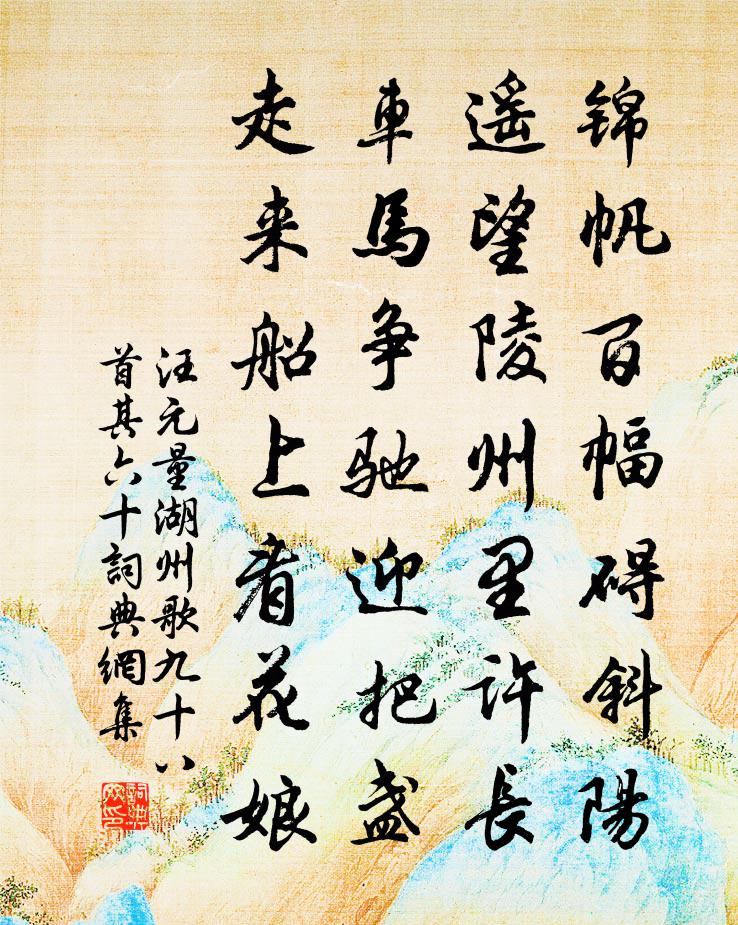 锦帆百幅碍斜陽
遥望陵州里許長
車馬争驰迎把盏
走来船上看花娘
汪元量湖州歌九十八
首其六十詞典網集